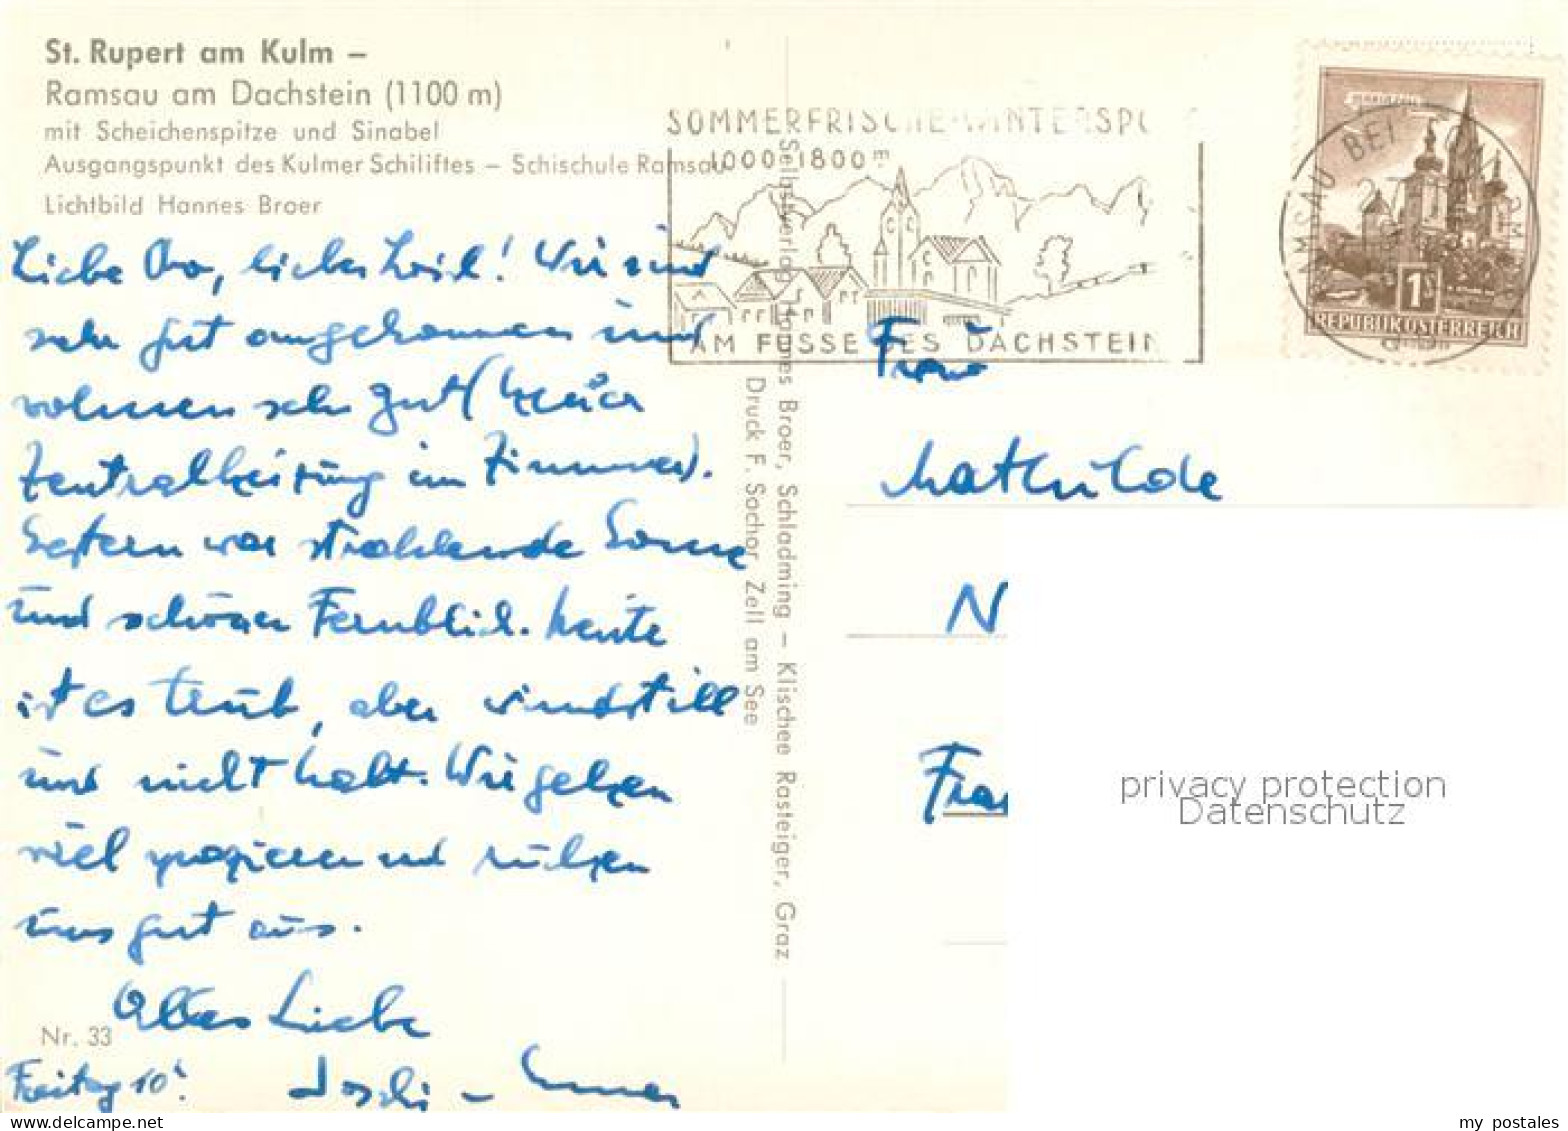 St. Rupert am Kulm –
Ramsau am Dachstein (1100 m)
mit Scheichenspitze und Sinabel
Ausgangspunkt des Kulmer Schiliftes – Schischule Ramsau
Lichtbild Hannes Broer
SOMMERFRISCHE-WINTERSP
1000-1800m
AM FUSSE DES DACHSTEIN
RAMSAU BEI
MARIAZELL
1S
REPUBLIK ÖSTERREICH
Liebe Oma, lieber ! Wir sind
sehr gut angekommen und
wohnen sehr gut (
Zentralheizung im Zimmer).
Gestern war strahlende Sonne
und schöner Fernblick. Heute
ist es trüb, aber windstill
und nicht kalt. Wir gehen
viel spazieren und ruhen
uns gut aus.
Alles Liebe
Nr. 33
Freitag 10
Selbstverlag Hannes Broer, Schladming – Klischee Rasteiger, Graz
Druck F. Sochor, Zell am See
Frau
Mathilde
N
Fra
privacy protection
Datenschutz
my postales